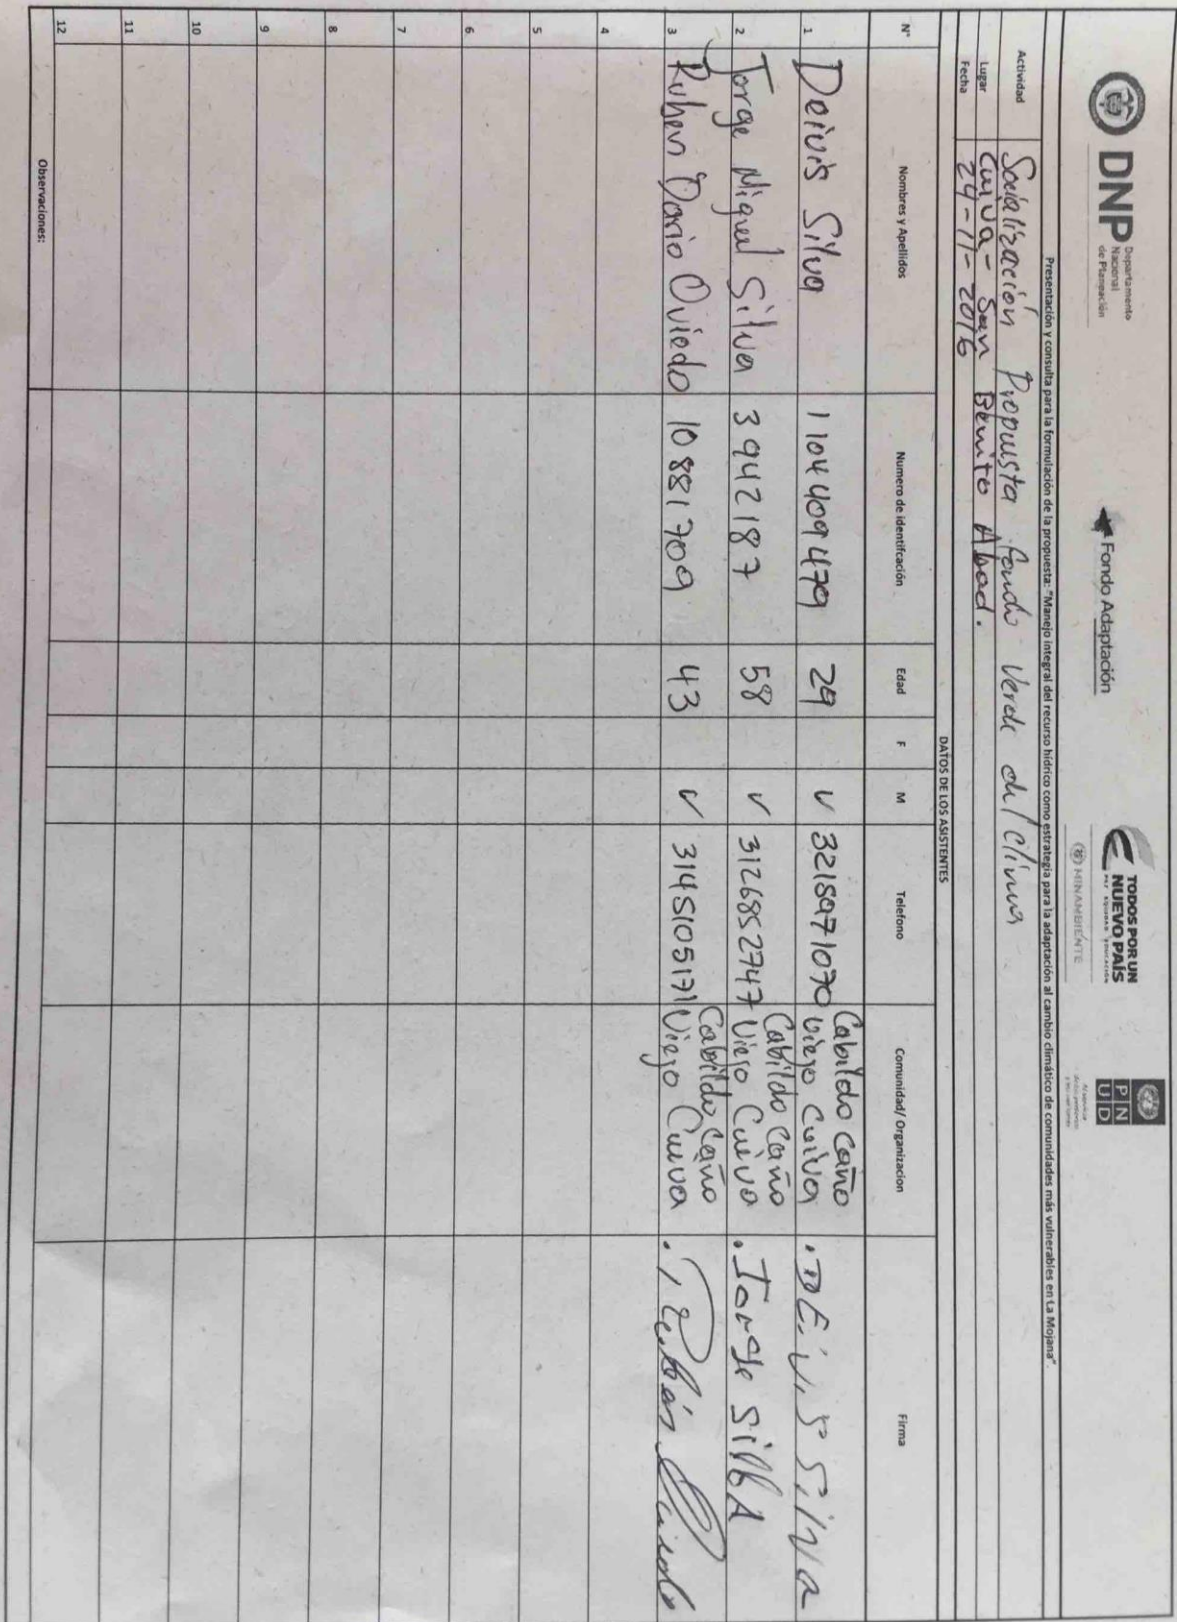 DNP Departamento
Nacional
de Planeación
Fondo Adaptación
TODOS POR UN
NUEVO PAÍS
PAZ EQUIDAD EDUCACIÓN
MINAMBIENTE
PN
UD
Presentación y consulta para la formulación de la propuesta: "Manejo integral del recurso hídrico como estrategia para la adaptación al cambio climático de comunidades más vulnerables en La Mojana".
Actividad Socialización Propuesta fondo verde del clima
Lugar Cuiva - San Benito Abad.
Fecha 24-11-2016
DATOS DE LOS ASISTENTES
N° Nombres y Apellidos Numero de identifcación Edad F M Telefono Comunidad/ Organizacion Firma
1 Deivis Silva 1104409479 29 ✓ 3218971070 Cabildo caño viejo Cuiva .DEiviS Silva
2 Jorge Miguel Silva 3942187 58 ✓ 3126852747 Cabildo caño Viejo Cuiva .Jorge Silba
3 Ruben Dario Oviedo 10881709 43 ✓ 3145105171 Cabildo caño Viejo Cuiva .Rubén Oviedo
4
5
6
7
8
9
10
11
12
Observaciones: